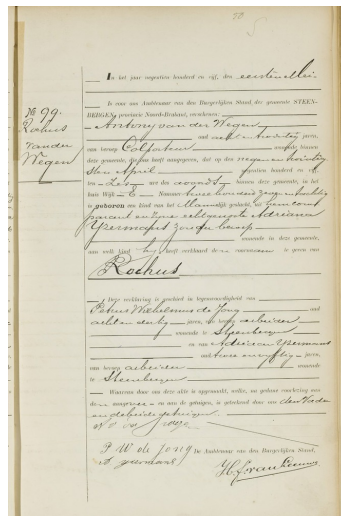 In het jaar negentien honderd en vijf, den eersten Mei
is voor ons Ambtenaar van den Burgerlijken Stand der gemeente STEEN-
BERGEN, provincie Noord-Brabant, verschenen:
Antony van der Wegen
oud acht en twintig jaren,
van beroep wonende binnen
deze gemeente, die ons heeft aangegeven, dat op den negen en twintig
sten April negentien honderd en vijf
ten zes ure des avonds binnen deze gemeente, in het
huis Wijk Nommer twee honderd
is geboren een kind van het Mannelijk geslacht, uit
en zijne echtgenoote Adriana
Ypermans zonder beroep
wonende in deze gemeente,
aan welk kind hij heeft verklaard de voornaam te geven van
Rochus
No 99.
Rochus
van der
Wegen
Deze verklaring is geschied in tegenwoordigheid van
Petrus Wilhelmus de Jong oud
acht en dertig jaren, van beroep arbeider
wonende te Steenbergen
en van Adriaan Ypermans
oud en vijftig jaren,
van beroep arbeider wonende
te Steenbergen
Waarvan door ons deze akte is opgemaakt, welke, na gedane voorlezing aan
den aangever en aan de getuigen, is geteekend door ons den Vader
en de beide getuigen
P W de Jong
A ypermans
De Ambtenaar van den Burgerlijken Stand,